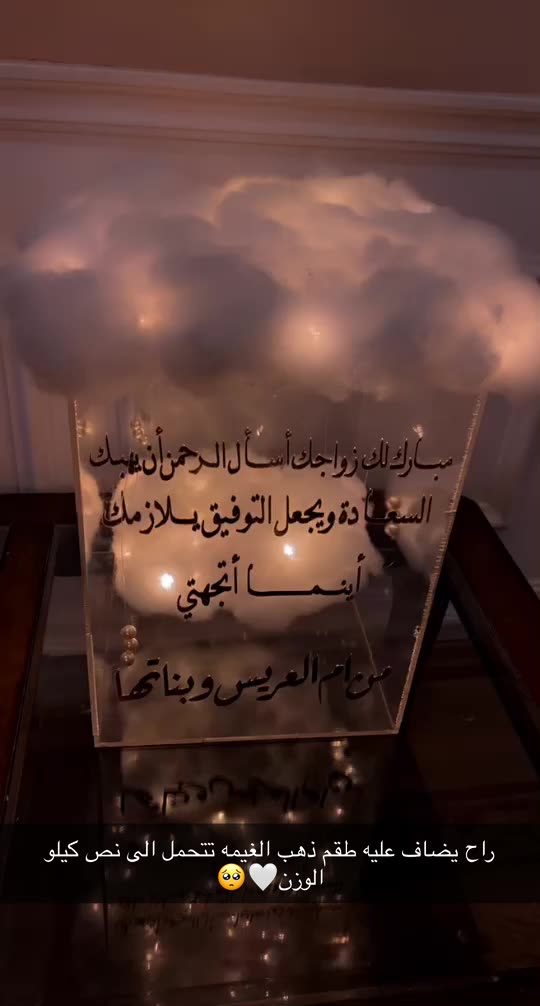 مبارك لك زواجك أسأل الرحمن أن يهبك
السعادة ويجعل التوفيق يلازمك
أينما أتجهتي
من أم العريس وبناتها
راح يضاف عليه طقم ذهب الغيمه تتحمل الى نص كيلو
الوزن🤍🥺